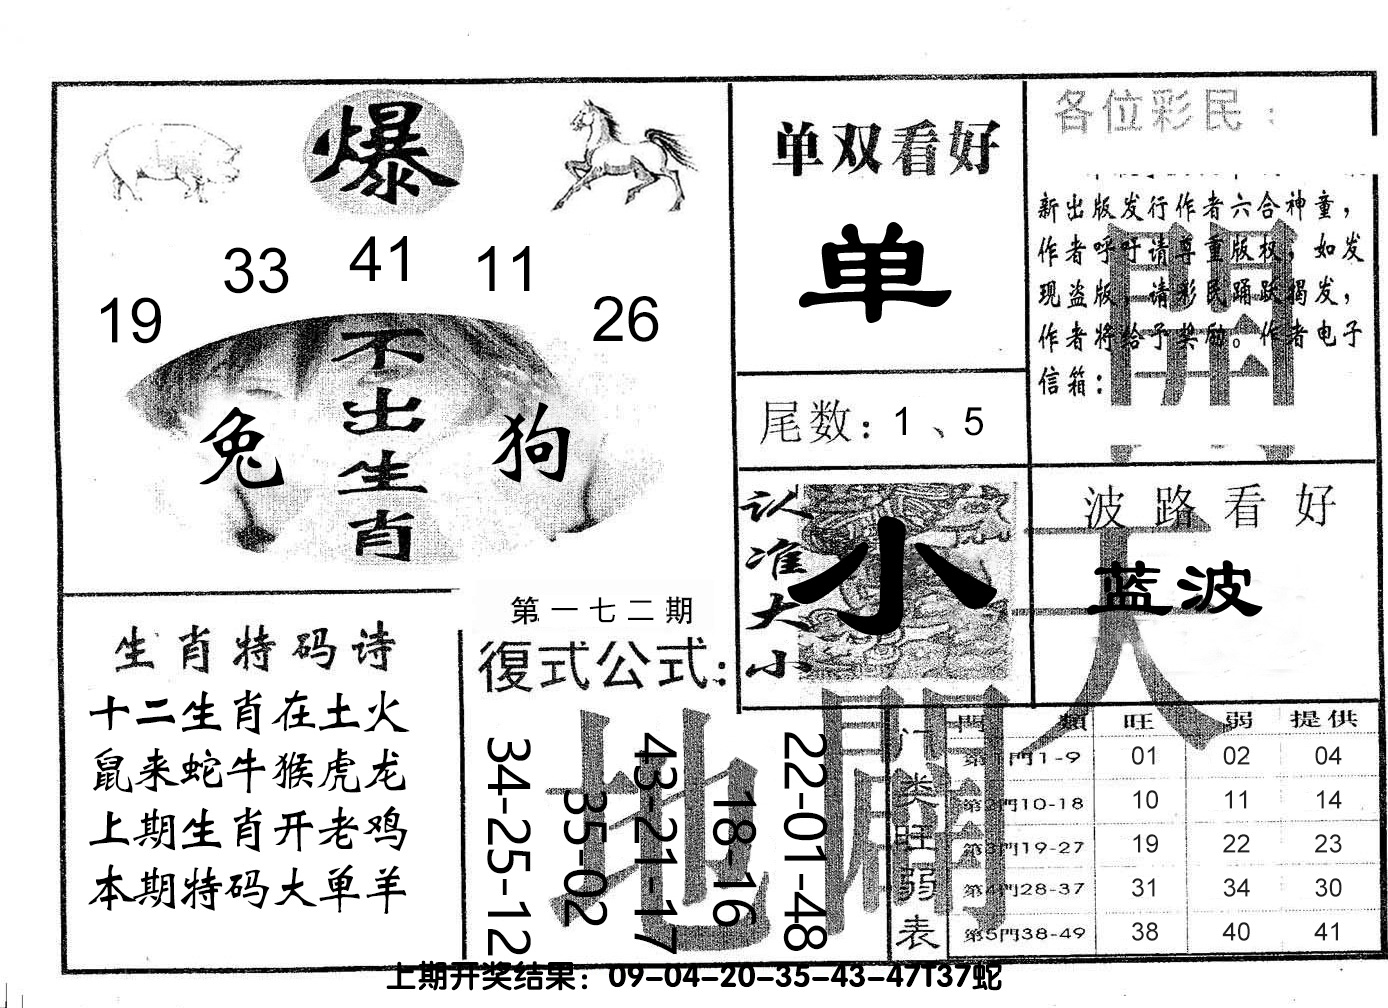 爆
33 41 11
19 26
不出生肖
兔 狗
单双看好
单
尾数：1、5
各位彩民：
新出版发行作者六合神童，
作者呼吁请尊重版权，如发
现盗版，请彩民踊跃揭发，
作者将给予奖励。作者电子
信箱：
认准大小
小
波路看好
蓝波
天
開
地
生肖特码诗
十二生肖在土火
鼠来蛇牛猴虎龙
上期生肖开老鸡
本期特码大单羊
第一七二期
復式公式：
34-25-12
35-02
43-21-17
18-16
22-01-48
门类旺弱表
門類 旺 弱 提供
第1門1-9 01 02 04
第2門10-18 10 11 14
第3門19-27 19 22 23
第4門28-37 31 34 30
第5門38-49 38 40 41
上期开奖结果：09-04-20-35-43-47T37蛇